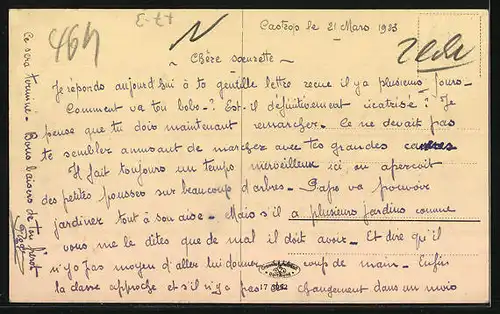 464
E-44
N
Castrop le 21 Mars 1923
~ Chère sœurette ~
Je réponds aujourd'hui à ta gentille lettre reçue il y a plusieurs jours-
Comment va ton bobo-? Est-il définitivement cicatrisé? Je
pense que tu dois maintenant remarcher. Ce ne devait pas
te sembler amusant de marcher avec tes grandes cannes
Il fait toujours un temps merveilleux ici, on aperçoit
des petites pousses sur beaucoup d'arbres- Papa va pouvoir
jardiner tout à son aise- Mais s'il a plusieurs jardins comme
vous me le dites que de mal il doit avoir- Et dire qu'il
n'y a pas moyen d'aller lui donner coup de main- Enfin
la classe approche et s'il n'y a pas de changement dans un mois
ce sera terminé- Bons baisers de ton frérot
17